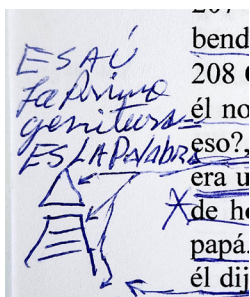 ESAÚ
La Primo
genitura =
ES LA Palabra
bend
208
él no
eso?,
era u
de he
papá.
él dij